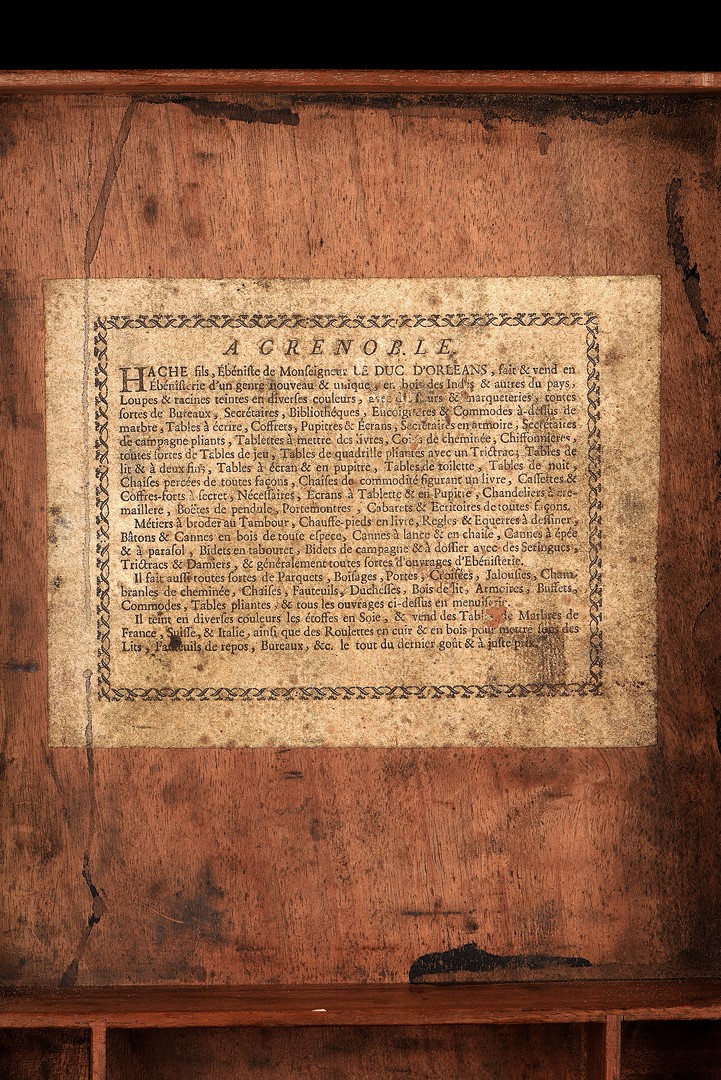 A GRENOBLE,
HACHE fils, Ébéniste de Monseigneur LE DUC D'ORLEANS, fait & vend en
Ébénisterie d'un genre nouveau & unique, en bois des Indes & autres du pays,
Loupes & racines teintes en diverses couleurs, avec des fleurs & marqueteries, toutes
sortes de Bureaux, Secrétaires, Bibliothéques, Encoignures & Commodes à-dessus de
marbre, Tables à écrire, Coffrets, Pupitres & Écrans, Secrétaires en armoire, Secrétaires
de campagne pliants, Tablettes à mettre des livres, de cheminée, Chiffonnieres,
toutes sortes de Tables de jeu, Tables de quadrille pliantes avec un Trictrac; Tables de
lit & à deux fins, Tables à écran & en pupitre, Tables de toilette, Tables de nuit,
Chaises percées de toutes façons, Chaises de commodité figurant un livre, Cassettes &
Coffres-forts à secret, Nécessaires, Écrans à Tablette & en Pupitre, Chandeliers à cre-
maillere, Boëtes de pendule, Portemontres, Cabarets & Ecritoires de toutes façons.
Métiers à broder au Tambour, Chauffe-pieds en livre, Regles & Equerres à dessiner,
Bâtons & Cannes en bois de toute espece, Cannes à lance & en chaise, Cannes à épée
& à parasol, Bidets en tabouret, Bidets de campagne & à dossier avec des Seringues,
Trictracs & Damiers, & généralement toutes sortes d'ouvrages d'Ebénisterie.
Il fait aussi toutes sortes de Parquets, Boisages, Portes, Croisées, Jalousies, Cham-
branles de cheminée, Chaises, Fauteuils, Duchesses, Bois de lit, Armoires, Buffets,
Commodes, Tables pliantes, & tous les ouvrages ci-dessus en menuiserie.
Il teint en diverses couleurs les étoffes en Soie, & vend des Tables de Marbres de
France, Suisse, & Italie, ainsi que des Roulettes en cuir & en bois pour mettre sous des
Lits, Fauteuils de repos, Bureaux, &c. le tout du dernier goût & à juste prix.